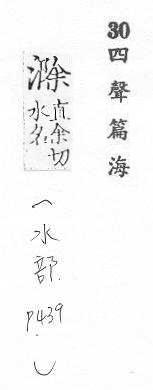 30四聲篇海
滁
直余切
水名
（水部 p439.）